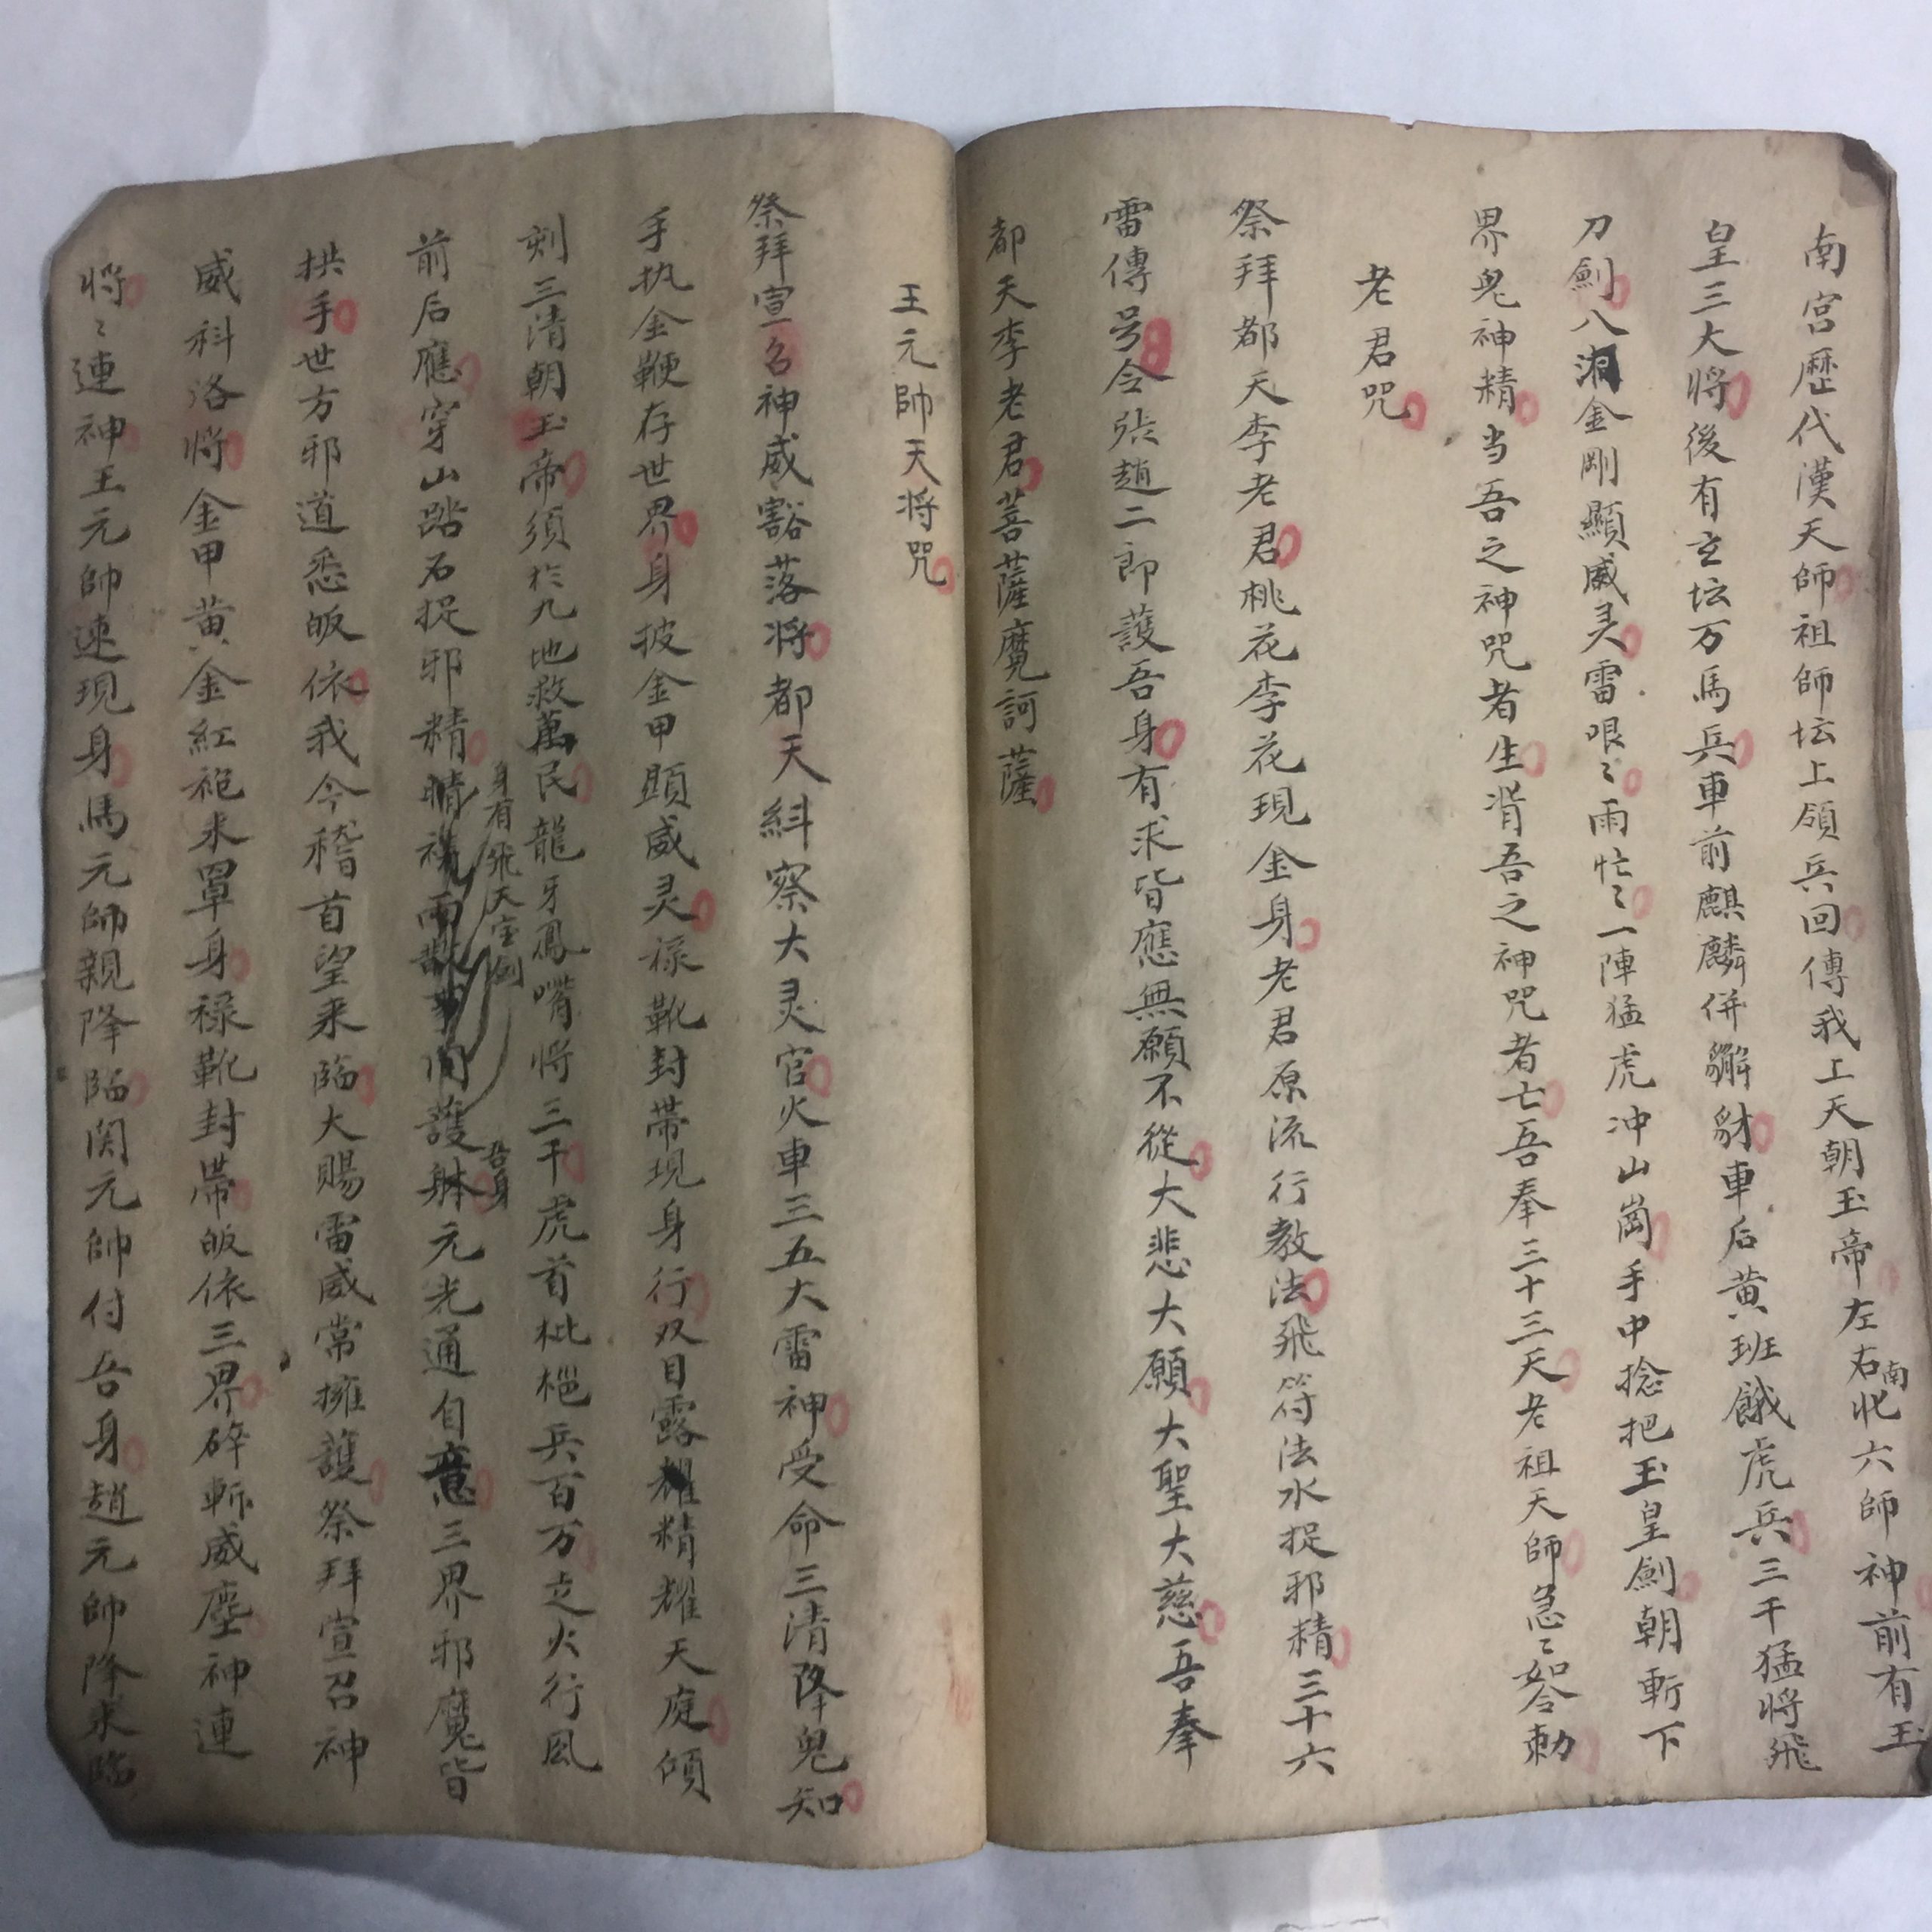 南宮歷代漢天師祖師坛上領兵回傳我上天朝玉帝左右南北六師神前有玉
皇三大将後有玄坛万馬兵車前麒麟併獬豸車后黄班餓虎兵三千猛将飛
刀劍八洞金剛顯威灵雷哏〻雨忙〻一陣猛虎冲山崗手中捻把玉皇劍朝斬下
界鬼神精当吾之神咒者生背吾之神咒者亡吾奉三十三天老祖天師急〻如令勅
老君咒
祭拜都天李老君桃花李花現金身老君原流行教法飛符法水捉邪精三十六
雷傳号令張趙二郎護吾身有求皆應無願不從大悲大願大聖大慈吾奉
都天李老君菩薩魔訶薩
王元帥天将咒
祭拜宣名神威豁落将都天糾察大灵官火車三五大雷神受命三清降鬼知
手执金鞭存世界身披金甲顕威灵禄靴封帶現身行双目露耀精耀天庭傾
刻三清朝玉帝須於九地救萬民龍牙鳳嘴将三千虎首枇杷兵百万走火行風
身有飛天宝劍 吾身
前后應穿山踏石捉邪精護躰元光通自意三界邪魔皆
拱手世方邪道悉皈依我今稽首望来臨大賜雷威常擁護祭拜宣召神
威科洛将金甲黄金紅袍来罩身禄靴封帶皈依三界碎斬威塵神連
将〻連神王元帥速現身馬元師親降臨関元帥付吾身趙元師降来臨